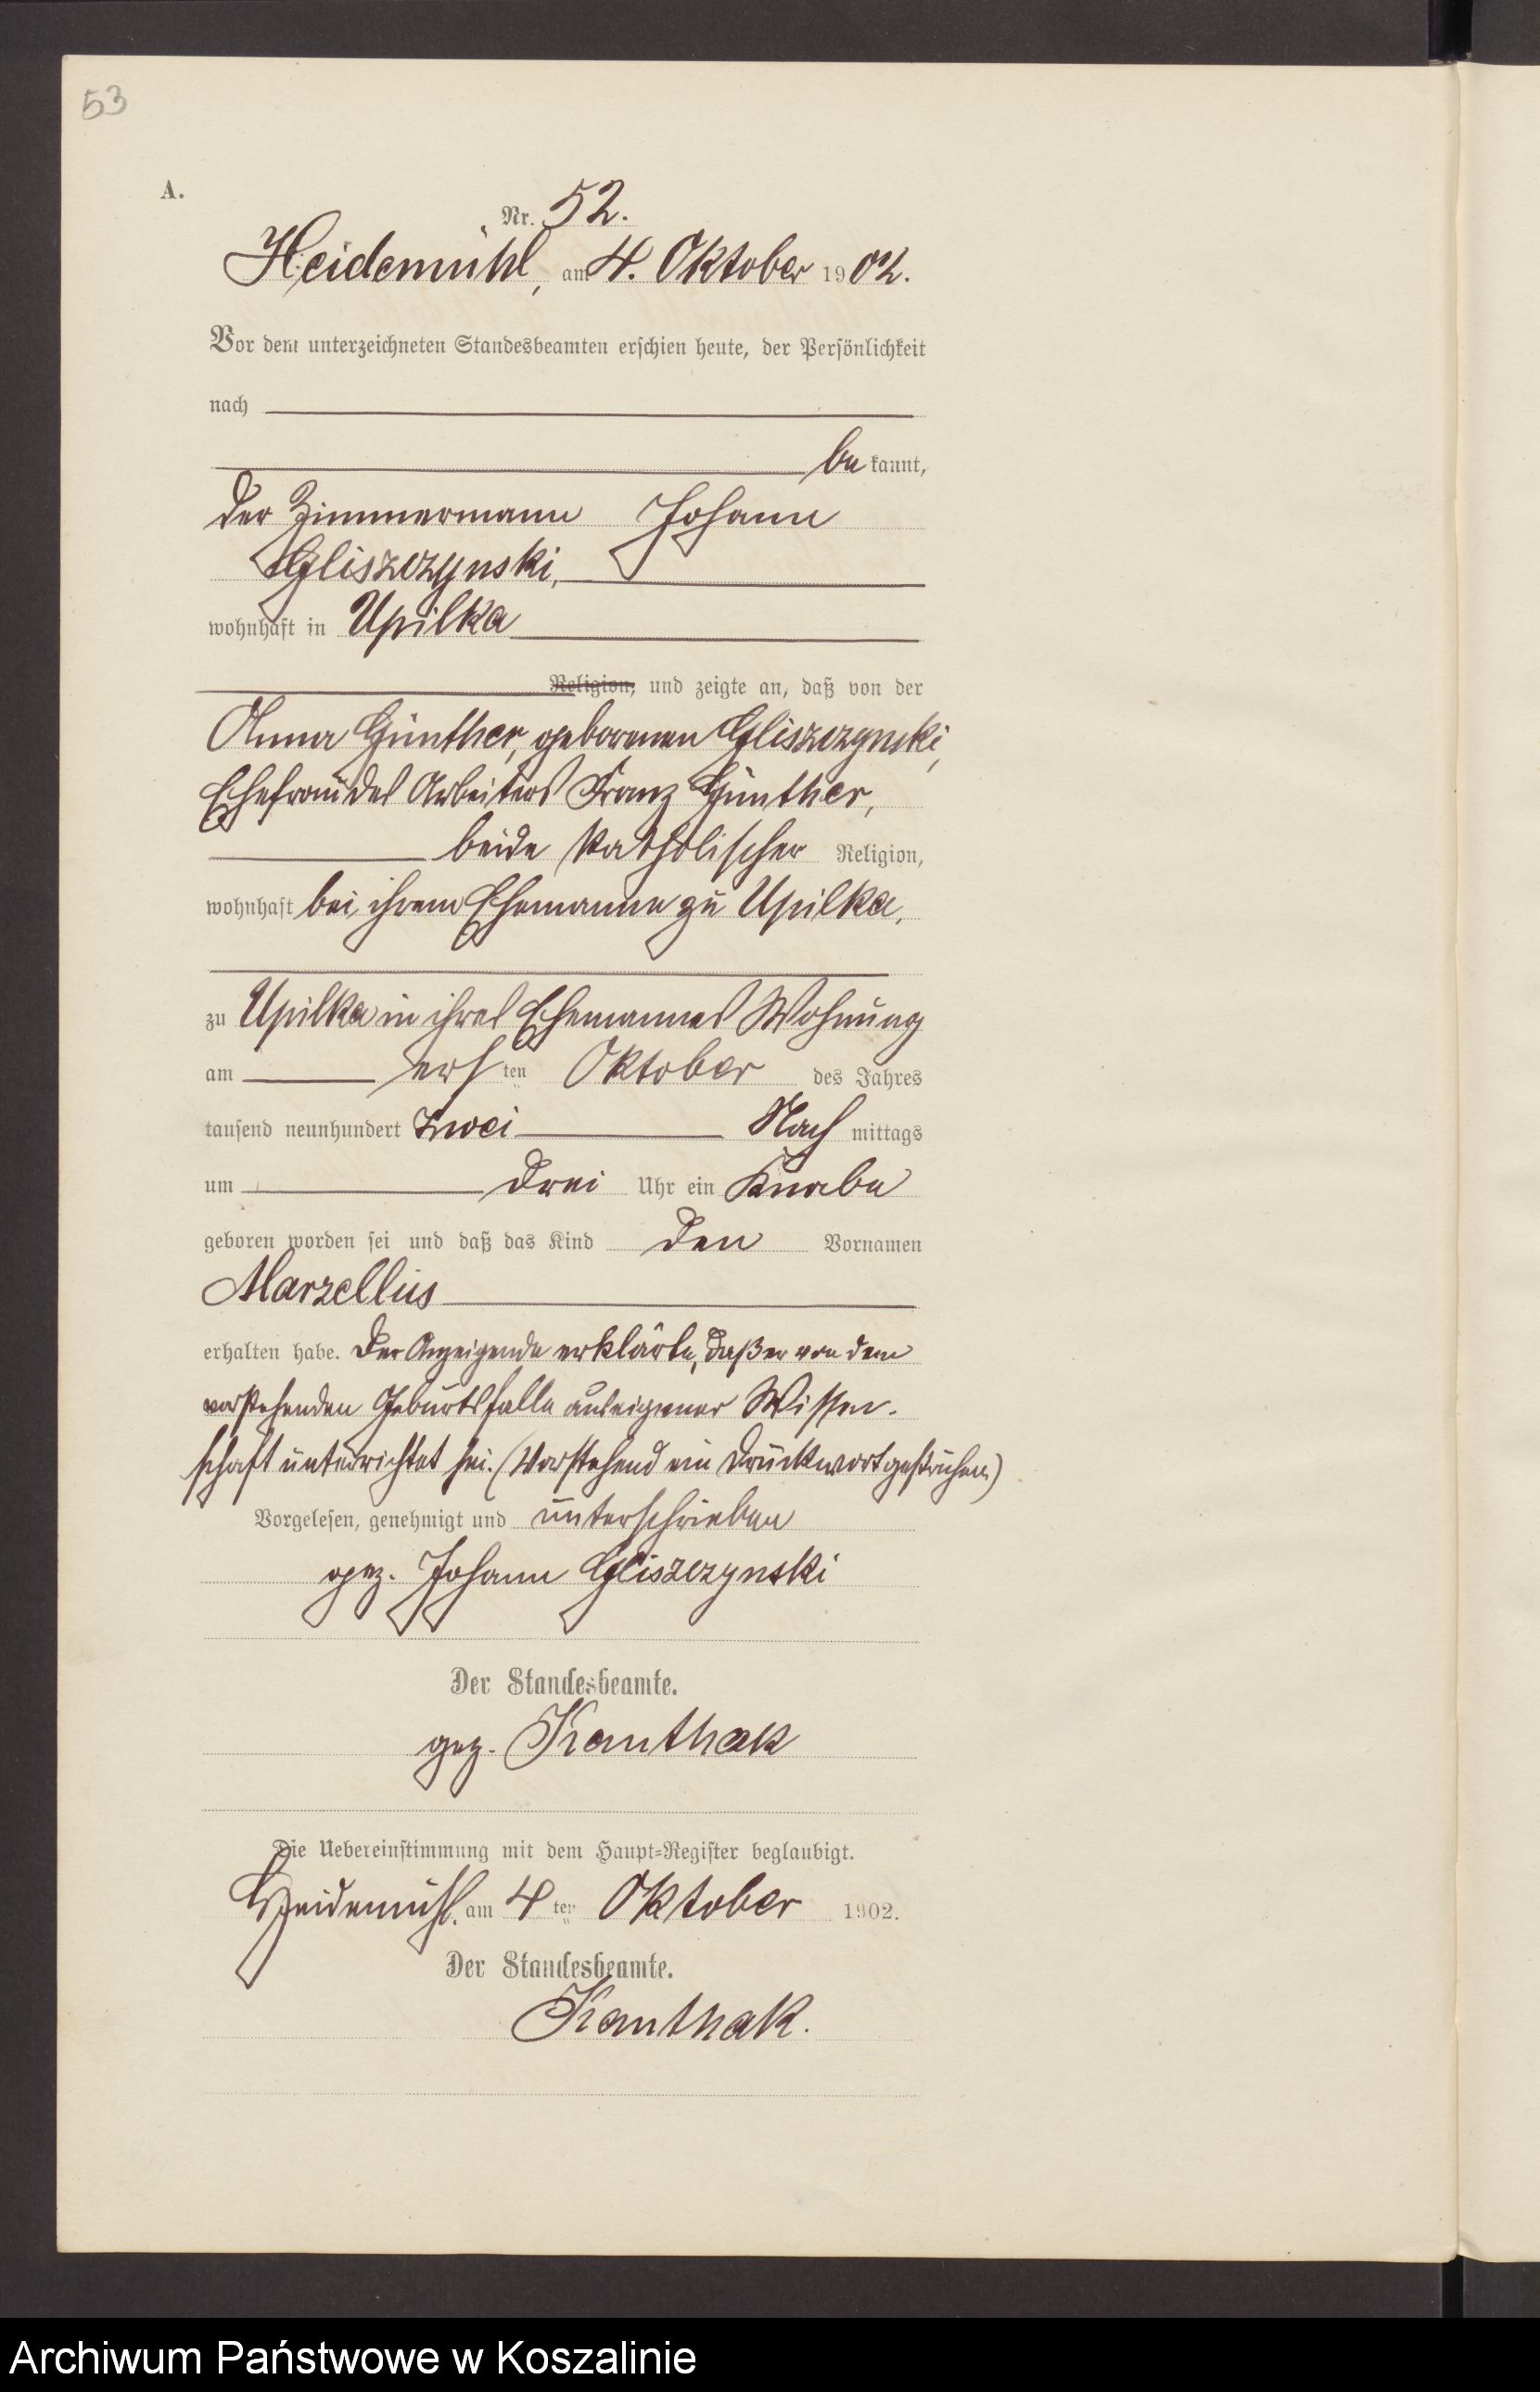 53
A.
Nr. 52.
Heidemühl, am 4. Oktober 1902.
Vor dem unterzeichneten Standesbeamten erschien heute, der Persönlichkeit
nach
be kannt,
der Zimmermann Johann
Gliszczynski,
wohnhaft in Upilka
Religion, und zeigte an, daß von der
Anna Günther, geborenen Gliszczynski,
Ehefrau des Arbeiters Franz Günther,
beide katholischer Religion,
wohnhaft bei ihrem Ehemanne zu Upilka,
zu Upilka in ihres Ehemannes Wohnung
am ersten Oktober des Jahres
tausend neunhundert zwei Nach mittags
um drei Uhr ein Knabe
geboren worden sei und daß das Kind den Vornamen
Marzellus
erhalten habe. Der Anzeigende erklärte, daß er von dem
vorstehenden Geburtsfalle aus eigener Wissen-
schaft unterrichtet sei. (Vorstehend ein Druckwort gestrichen)
Vorgelesen, genehmigt und unterschrieben
gez. Johann Gliszczynski
Der Standesbeamte.
gez. Kanthak
Die Uebereinstimmung mit dem Haupt-Register beglaubigt.
Heidemühl, am 4ten Oktober 1902.
Der Standesbeamte.
Kanthak.
Archiwum Państwowe w Koszalinie